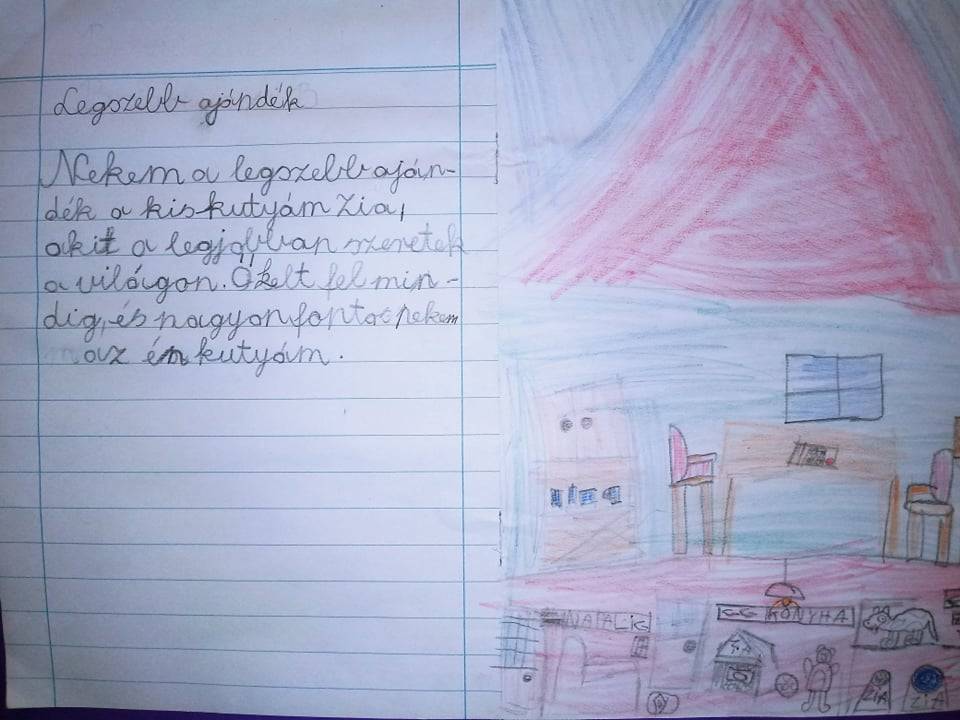 Legszebb ajándék
Nekem a legszebb aján-
dék a kiskutyám Zia,
akit a legjobban szeretek
a világon. Ő kelt fel min-
dig, és nagyon fontos nekem
az én kutyám.
NATALI
KONYHA
ZIA
ZIA